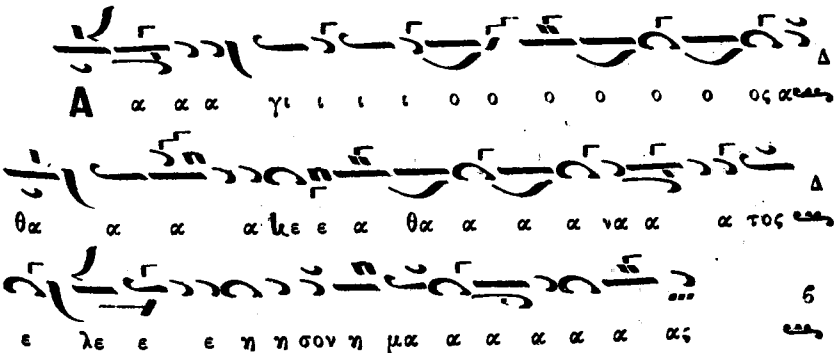 Α α α α γι ι ι ι ο ο ο ο ο ο ος α
θα α α α κε ε α θα α α α να α α τος
ε λε ε ε η η σον η μα α α α α α ας